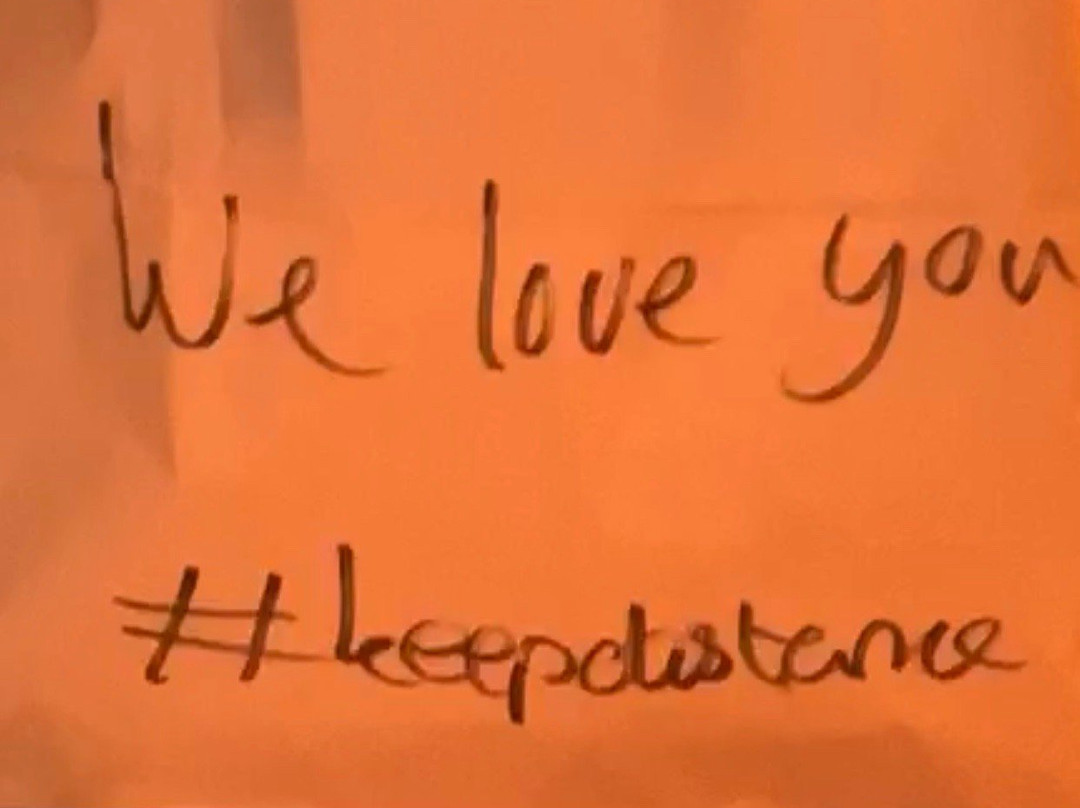 We love you
#keepdistance